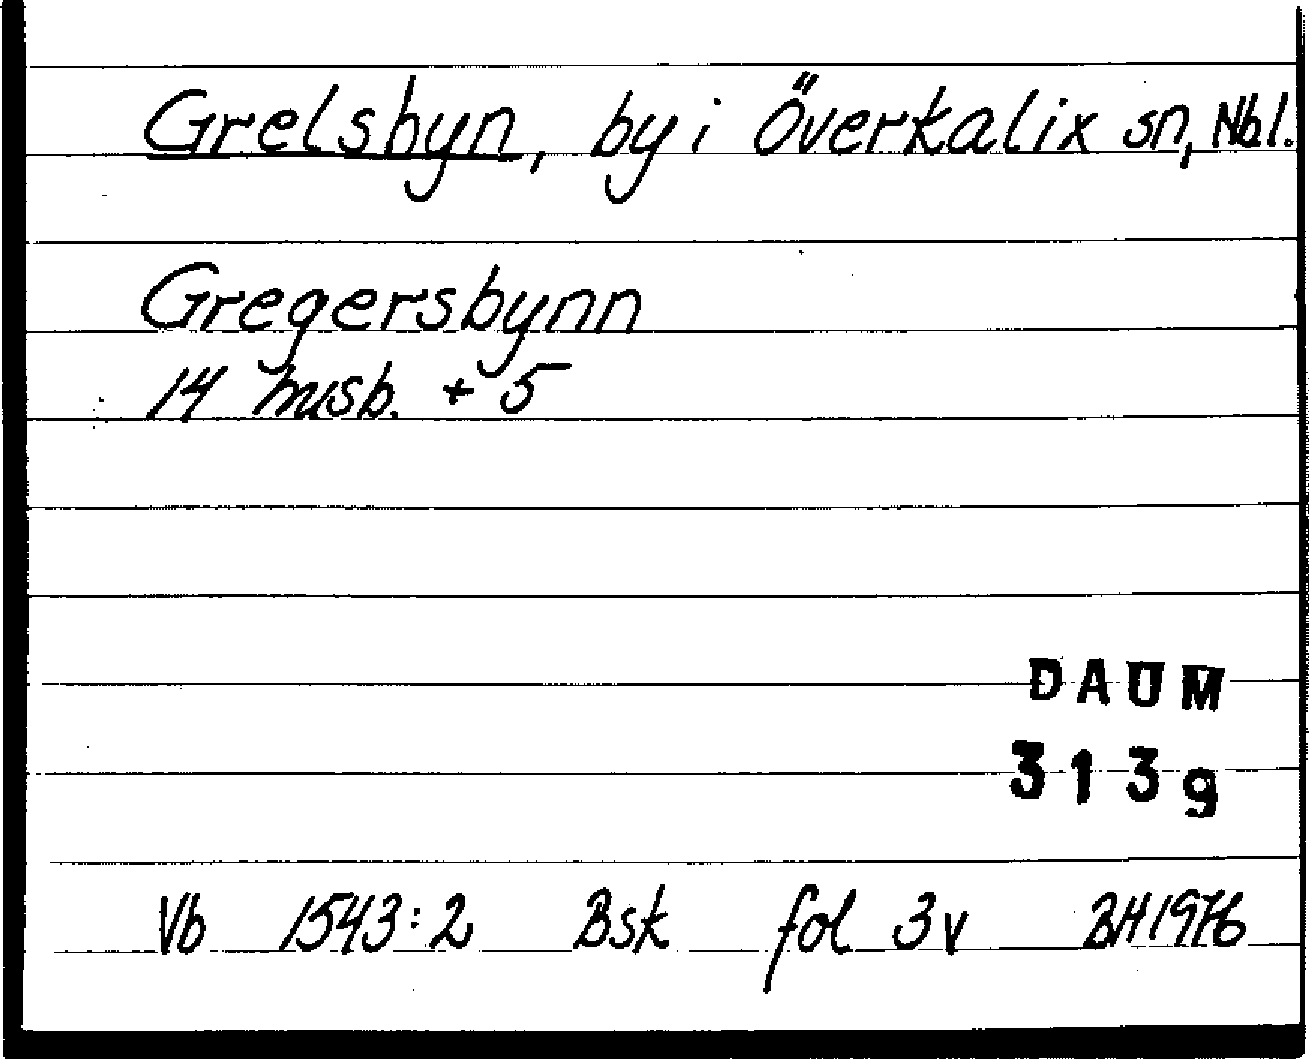 Grelsbyn, by i Överkalix sn, Nbl.
Gregersbynn
14 husb. + 5
DAUM
313g
Vb 1543:2 Bsk fol 3v BH1976